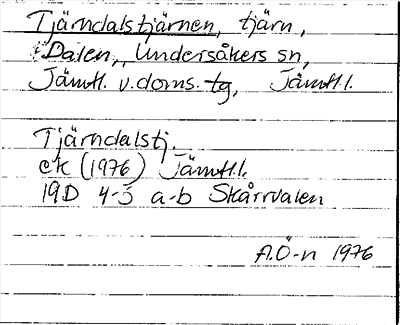 Tjärndalstjärnen, tjärn,
Dalen, Undersåkers sn,
Jämtl. v. doms. tg, Jämtl l.
Tjärndalstj.
ek (1976) Jämtl.l.
19D 4-5 a-b Skårrvalen
A.Ö-n 1976